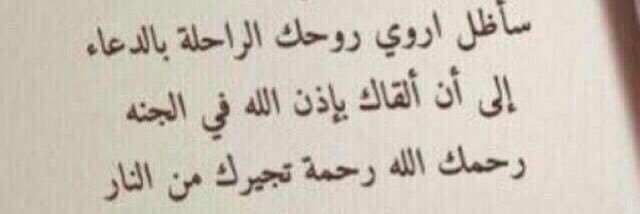 سأظل اروي روحك الراحلة بالدعاء
إلى أن ألقاك بإذن الله في الجنه
رحمك الله رحمة تجيرك من النار